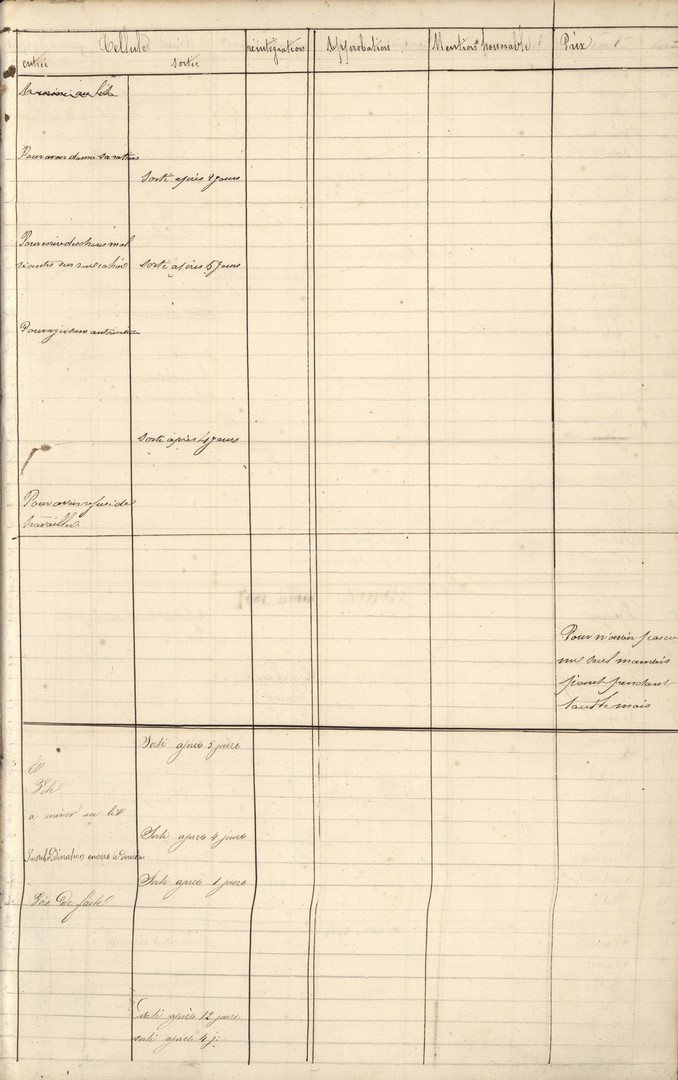 Cellule
réintégration
Approbation
Mention honorable
Prix
entrée
sortie
Pour avoir donné sa ration
Sorti après 8 jours
Pour écrire des choses mal
séantes sur son cahier
Sorti après 5 jours
Pour
Sorti après 4 jours
Pour avoir refusé de
travailler
Pour n'avoir pas eu
un seul mauvais
point pendant
tout le mois
Sorti après 5 jours
a uriné au lit
Sorti après 4 jours
Insubordination envers le directeur
Sorti après 1 jours
Voie de faite
Sorti après 12 jours
sorti après 4 j.